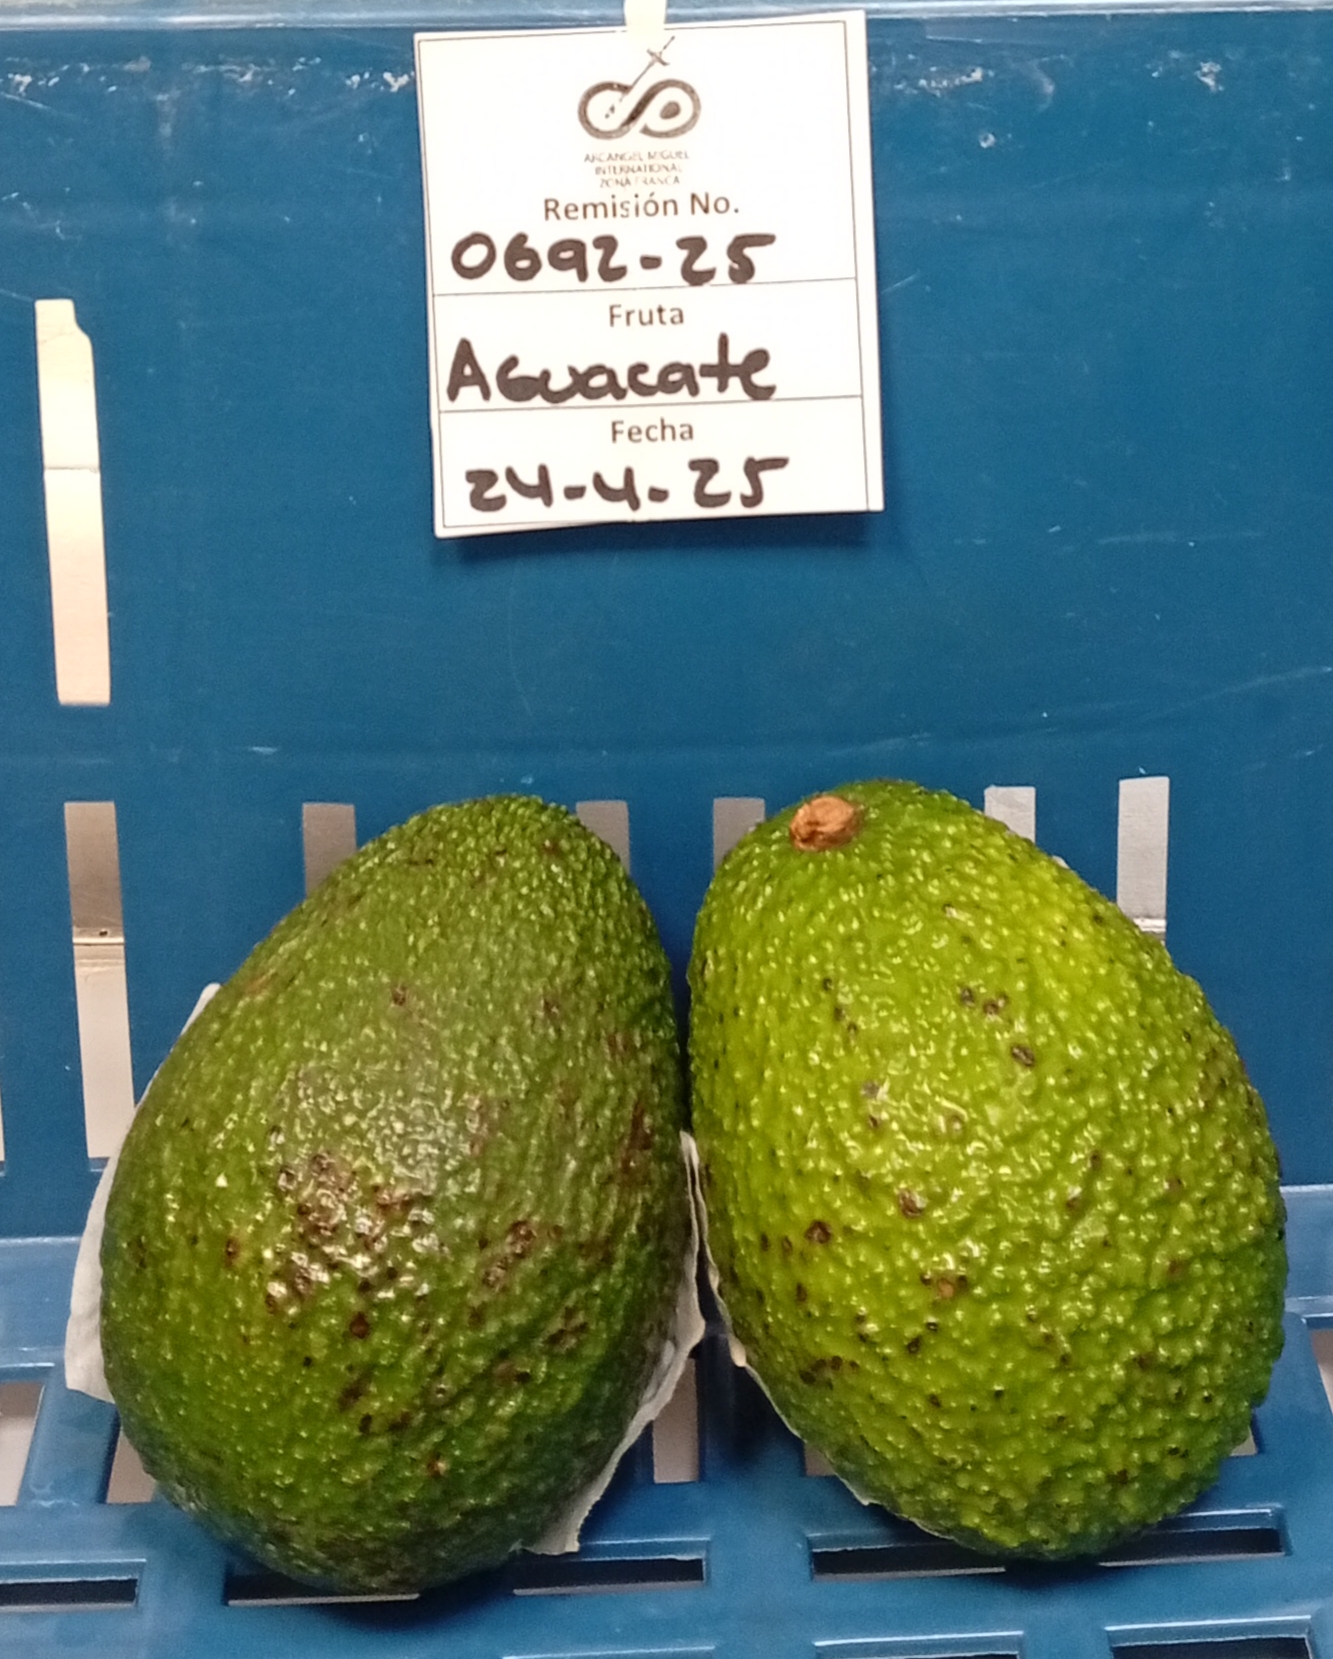 ARCANGEL MIGUEL
INTERNATIONAL
ZONA FRANCA
Remisión No.
0692-25
Fruta
AGuacate
Fecha
24-4-25